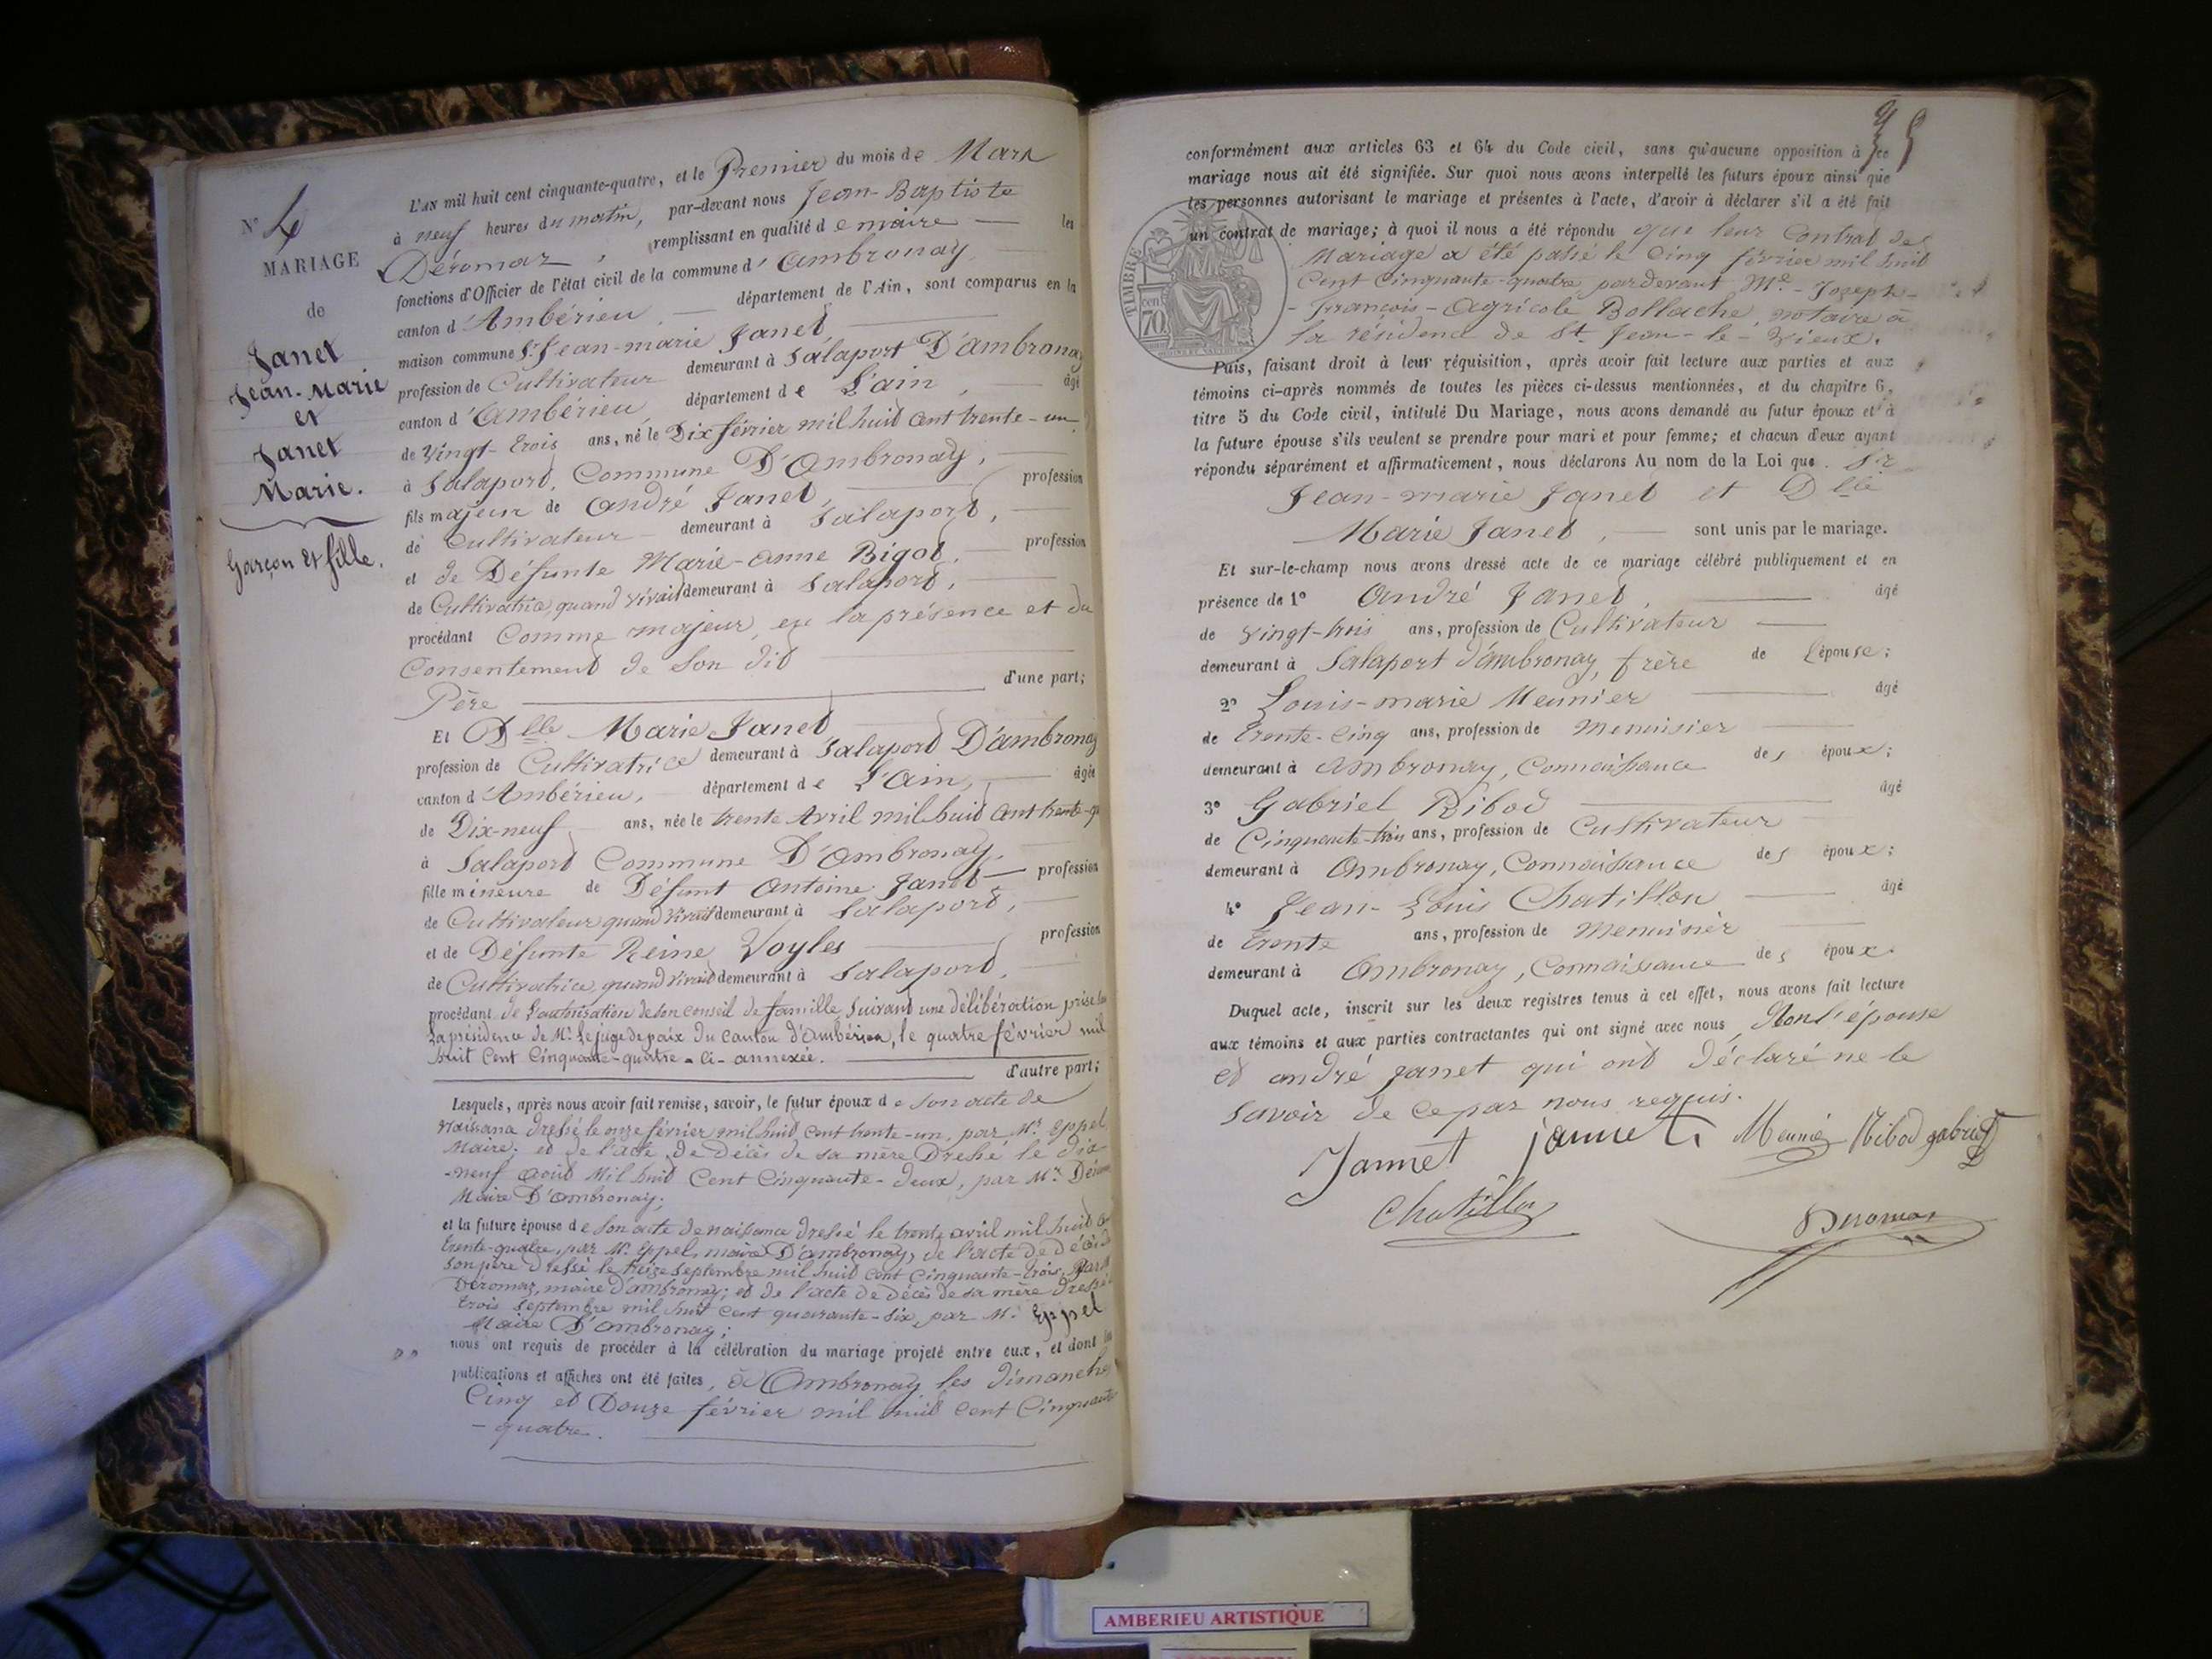 N° 4
MARIAGE
de
Janet
Jean-Marie
et
Janet
Marie.
Garçon et fille.
L'AN mil huit cent cinquante-quatre, et le Premier du mois de Mars
à neuf heures du matin, par-devant nous Jean-Baptiste
Déromaz, remplissant en qualité de maire les
fonctions d'Officier de l'état civil de la commune d'Ambronay,
canton d'Ambérieu, département de l'Ain, sont comparus en la
maison commune Sr Jean-marie Janet,
profession de Cultivateur demeurant à Salaport D'ambronay
canton d'Ambérieu, département de L'ain, âgé
de Vingt-trois ans, né le Dix février mil huit cent trente-un
à Salaport, Commune D'Ambronay,
fils majeur de André Janet, profession
de Cultivateur demeurant à Salaport,
et de Défunte Marie-anne Bigot, profession
de Cultivatrice, quand vivait demeurant à Salaport,
procédant Comme majeur, en la présence et du
Consentement de Son dit
Père d'une part;
Et Dlle Marie Janet
profession de Cultivatrice demeurant à Salaport D'ambronay
canton d'Ambérieu, département de L'Ain, âgée
de Dix-neuf ans, née le trente Avril mil huit cent trente-q
à Salaport Commune D'Ambronay,
fille mineure de Défunt Antoine Janet profession
de Cultivateur quand vivait demeurant à Salaport,
et de Défunte Reine Voyles profession
de Cultivatrice quand vivait demeurant à Salaport,
procédant de l'autorisation de son conseil de famille Suivant une délibération prise sous
la présidence de Mr. Le juge de paix du canton d'Ambérieu, le quatre février mil
huit Cent Cinquante-quatre - ci-annexée.
d'autre part;
Lesquels, après nous avoir fait remise, savoir, le futur époux de son acte de
Naissance dressé le onze février mil huit cent trente-un, par Mr. Eppel,
Maire; et de l'acte de décès de sa mère Dressé le dix-
-neuf août Mil huit Cent Cinquante-deux, par Mr.
Maire D'ambronay;
et la future épouse de son acte de naissance dressé le trente avril mil huit
trente-quatre, par Mr. Eppel, maire D'ambronay, de l'acte de décès de
son père dressé le treize Septembre mil huit cent Cinquante-trois, par
Déromaz, maire d'ambronay; et de l'acte de décès de sa mère dressé
trois Septembre mil huit cent quarante-six, par Mr. Eppel
Maire D'ambronay;
nous ont requis de procéder à la célébration du mariage projeté entre eux, et dont les
publications et affiches ont été faites, à Ambronay les dimanches
Cinq et Douze février mil huit cent Cinquante
-quatre.
conformément aux articles 63 et 64 du Code civil, sans qu'aucune opposition à ce
mariage nous ait été signifiée. Sur quoi nous avons interpellé les futurs époux ainsi que
les personnes autorisant le mariage et présentes à l'acte, d'avoir à déclarer s'il a été fait
un contrat de mariage; à quoi il nous a été répondu que leur Contrat de
Mariage a été passé le Cinq février mil huit
Cent Cinquante-quatre pardevant Me - Joseph-
-François-Agricole Bollache, notaire à
la résidence de St Jean-le-Vieux.
TIMBRE
cen
70.
Puis, faisant droit à leur réquisition, après avoir fait lecture aux parties et aux
témoins ci-après nommés de toutes les pièces ci-dessus mentionnées, et du chapitre 6,
titre 5 du Code civil, intitulé Du Mariage, nous avons demandé au futur époux et à
la future épouse s'ils veulent se prendre pour mari et pour femme; et chacun d'eux ayant
répondu séparément et affirmativement, nous déclarons Au nom de la Loi que Sr
Jean-marie Janet et Dlle
Marie Janet, sont unis par le mariage.
Et sur-le-champ nous avons dressé acte de ce mariage célébré publiquement et en
présence de 1° André Janet, âgé
de Vingt-trois ans, profession de Cultivateur
demeurant à Salaport d'ambronay, frère de l'épouse;
2° Louis-marie Meunier âgé
de trente-cinq ans, profession de Menuisier
demeurant à Ambronay, Connaissance des époux;
3° Gabriel Ribod âgé
de Cinquante-trois ans, profession de Cultivateur
demeurant à Ambronay, Connaissance des époux;
4° Jean-Louis Chatillon âgé
de trente ans, profession de Menuisier
demeurant à Ambronay, Connaissance des époux.
Duquel acte, inscrit sur les deux registres tenus à cet effet, nous avons fait lecture
aux témoins et aux parties contractantes qui ont signé avec nous, Non l'épouse
et andré Janet qui ont déclaré ne le
Savoir de ce par nous requis.
Jannet jannet Meunier Ribod gabriel
Chatillon
Deromas
AMBERIEU ARTISTIQUE